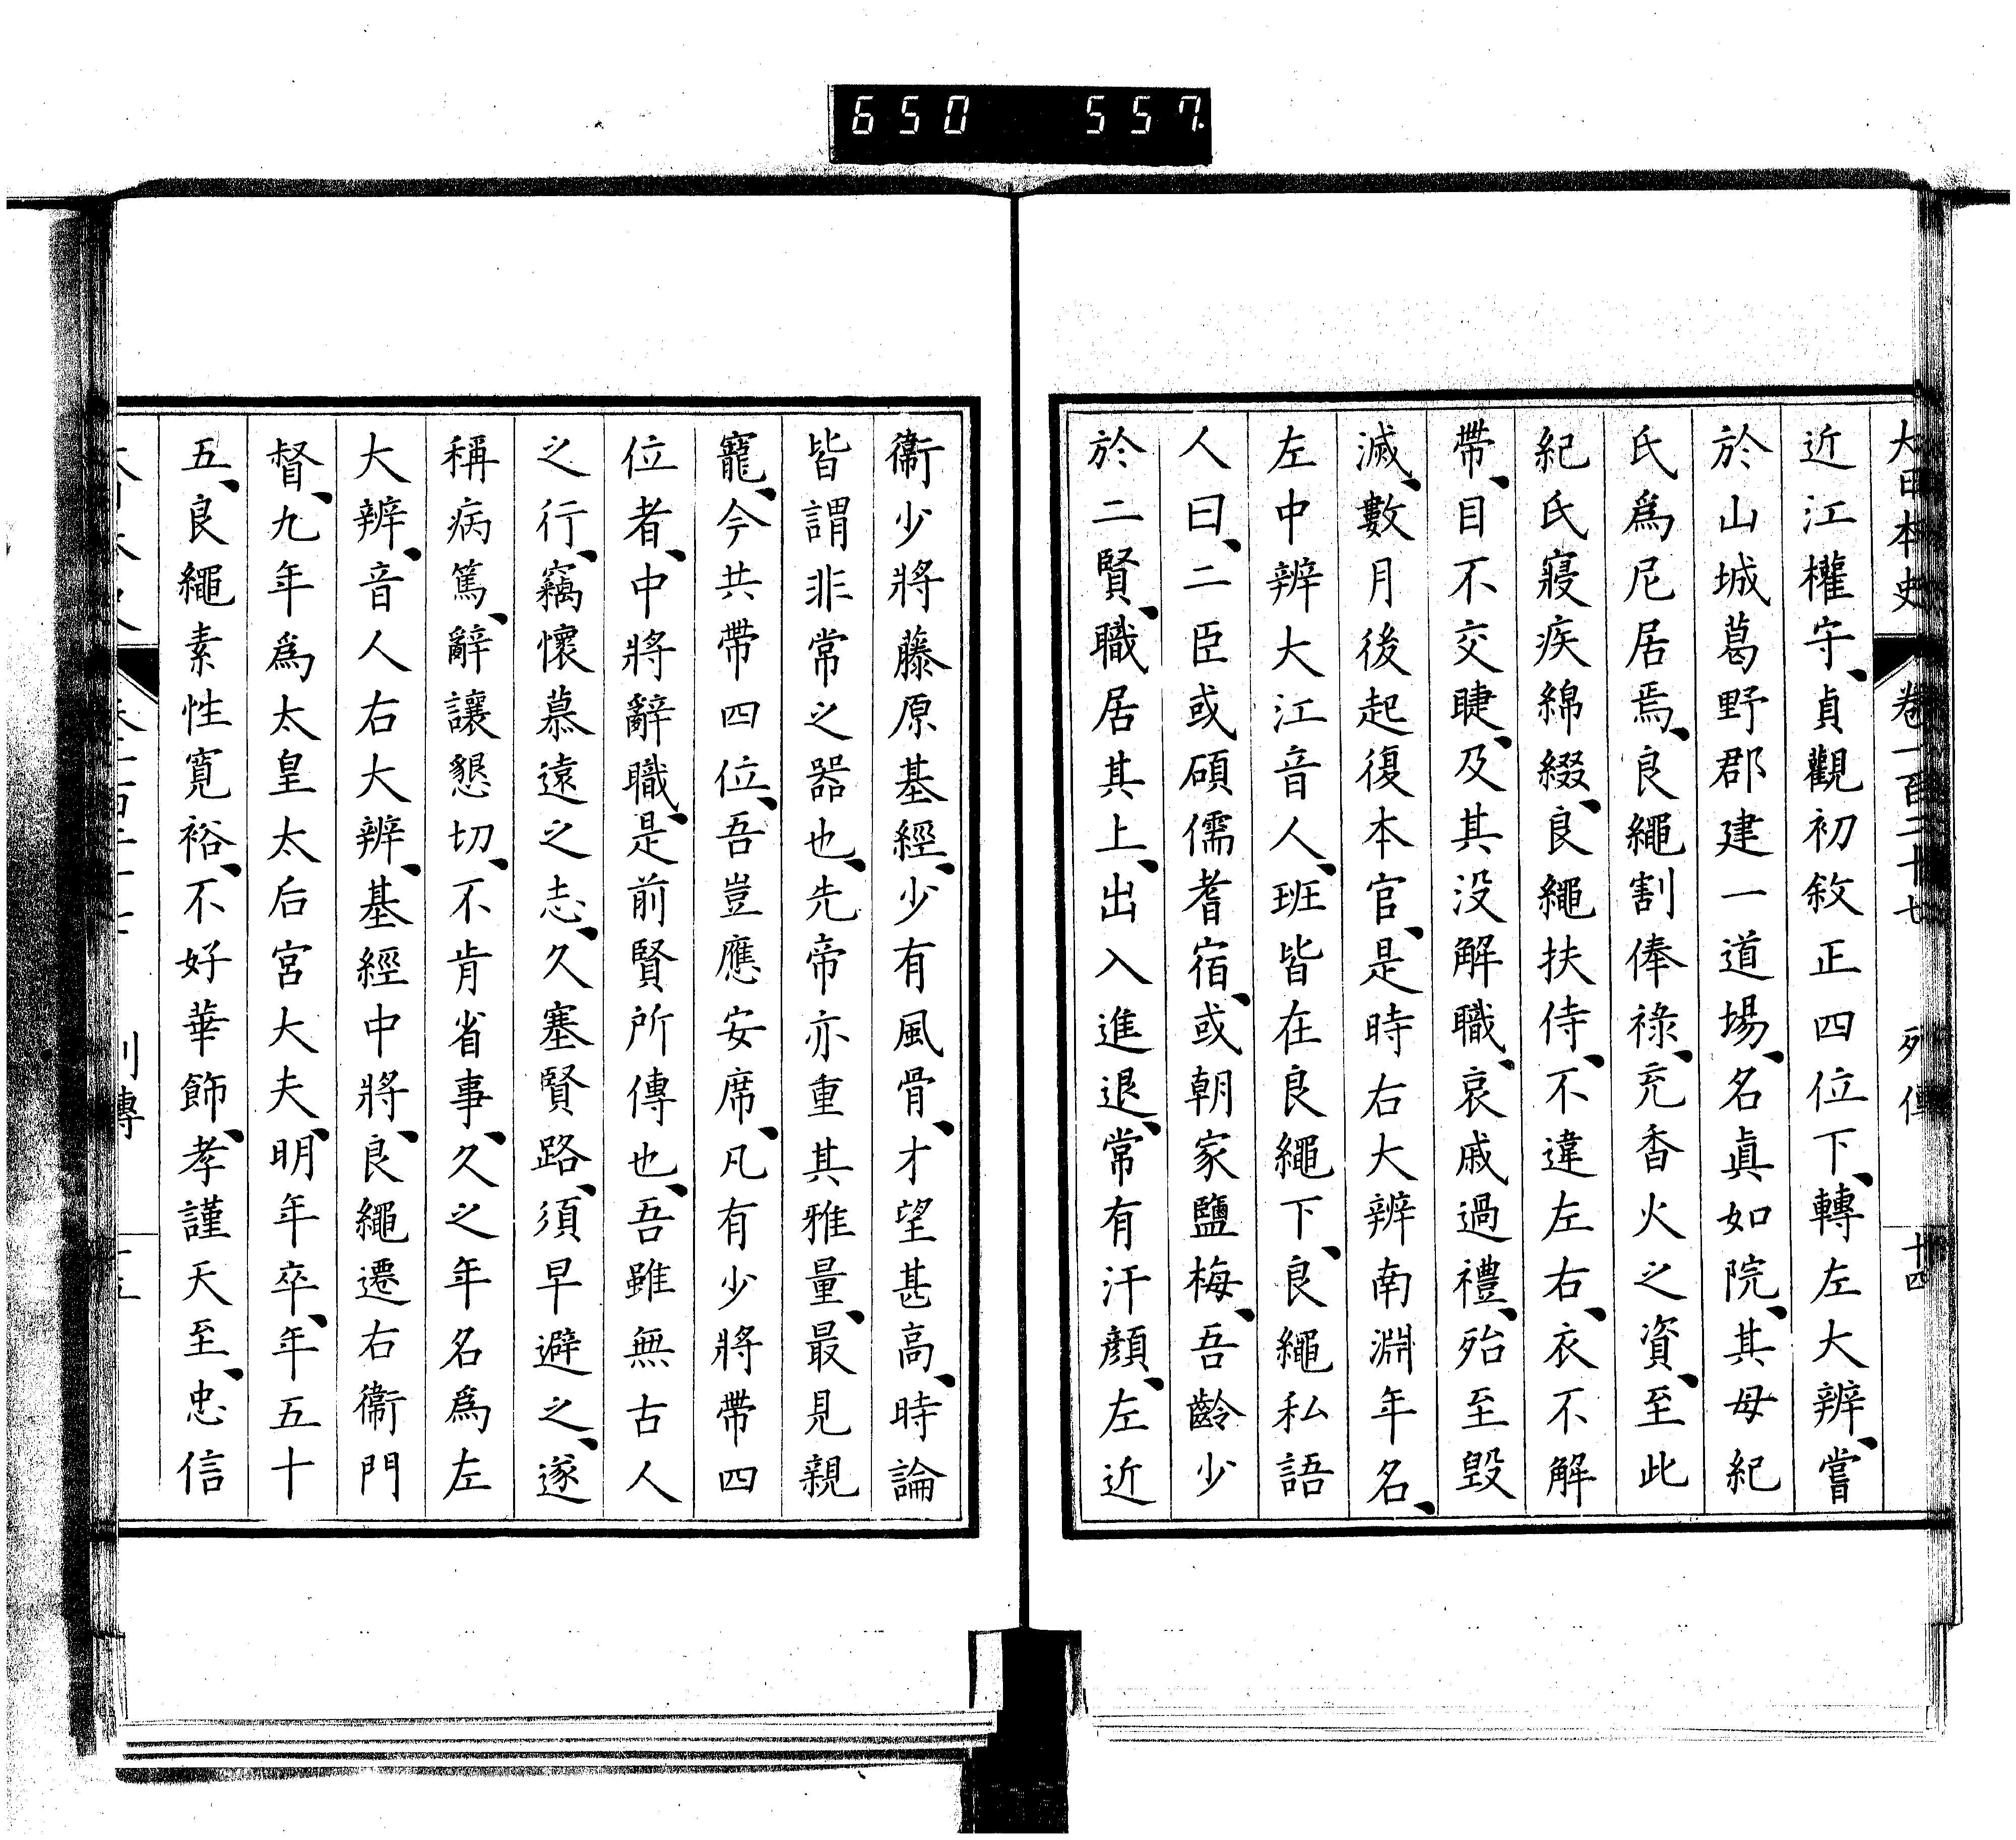 650 557
大日本史 卷一百二十七 列傳 十四
近江權守、貞觀初敘正四位下、轉左大辨、嘗
於山城葛野郡建一道場、名眞如院、其母紀
氏爲尼居焉、良繩割俸祿、充香火之資、至此
紀氏寢疾綿綴、良繩扶侍、不違左右、衣不解
帶、目不交睫、及其沒解職、哀戚過禮、殆至毀
滅、數月後起復本官、是時右大辨南淵年名、
左中辨大江音人、班皆在良繩下、良繩私語
人曰、二臣或碩儒耆宿、或朝家鹽梅、吾齡少
於二賢、職居其上、出入進退、常有汗顏、左近
衞少將藤原基經、少有風骨、才望甚高、時論
皆謂非常之器也、先帝亦重其雅量、最見親
寵、今共帶四位、吾豈應安席、凡有少將帶四
位者、中將辭職、是前賢所傳也、吾雖無古人
之行、竊懷慕遠之志、久塞賢路、須早避之、遂
稱病篤、辭讓懇切、不肯省事、久之年名爲左
大辨、音人右大辨、基經中將、良繩遷右衞門
督、九年爲太皇太后宮大夫、明年卒、年五十
五、良繩素性寬裕、不好華飾、孝謹天至、忠信